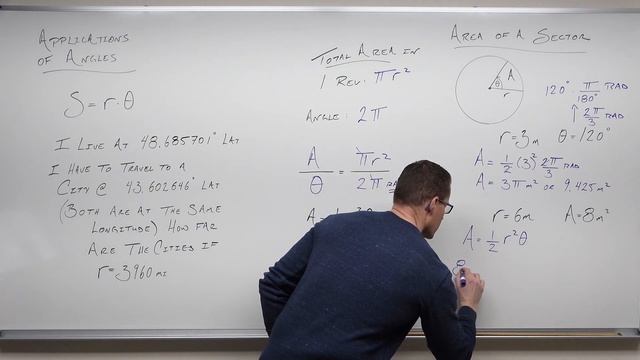 APPLICATIONS
OF ANGLES
S = r · θ
I LIVE AT 48.685701° LAT
I HAVE TO TRAVEL TO A
CITY @ 43.602646° LAT
(BOTH ARE AT THE SAME
LONGITUDE) HOW FAR
ARE THE CITIES IF
r = 3960 MI
TOTAL AREA IN
1 REV: πr²
ANGLE: 2π
A/θ = πr²/2π
AREA OF A SECTOR
θ
A
r
120° · π/180° RAD
↑ 2π/3 RAD
r = 3m θ = 120°
A = 1/2 (3)² 2π/3 RAD
A = 3πm² OR 9.425m²
r = 6m A = 8m²
A = 1/2 r²θ
8